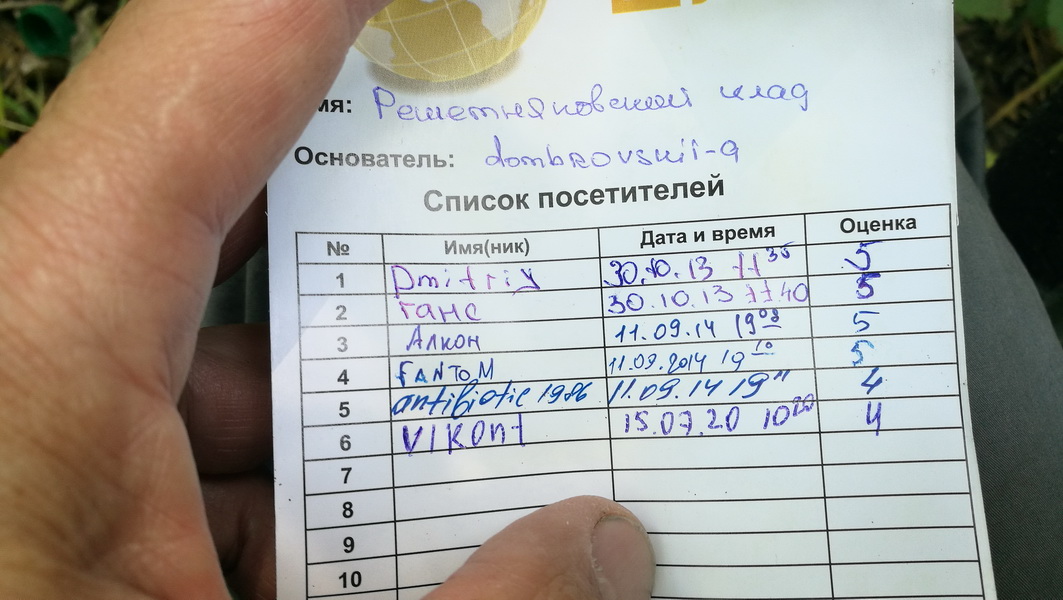 мя: Решетняковский клад
Основатель: dombrovskii-a
Список посетителей
№ Имя(ник) Дата и время Оценка
1 Dmitriy 30.10.13 11 35 5
2 ганс 30.10.13 11 40 5
3 Алкон 11.09.14 19 08 5
4 FANTOM 11.09.2014 19 10 5
5 antibiotic 1986 11.09.14 19 11 4
6 VIKOnt 15.07.20 10 20 4
7
8
9
10